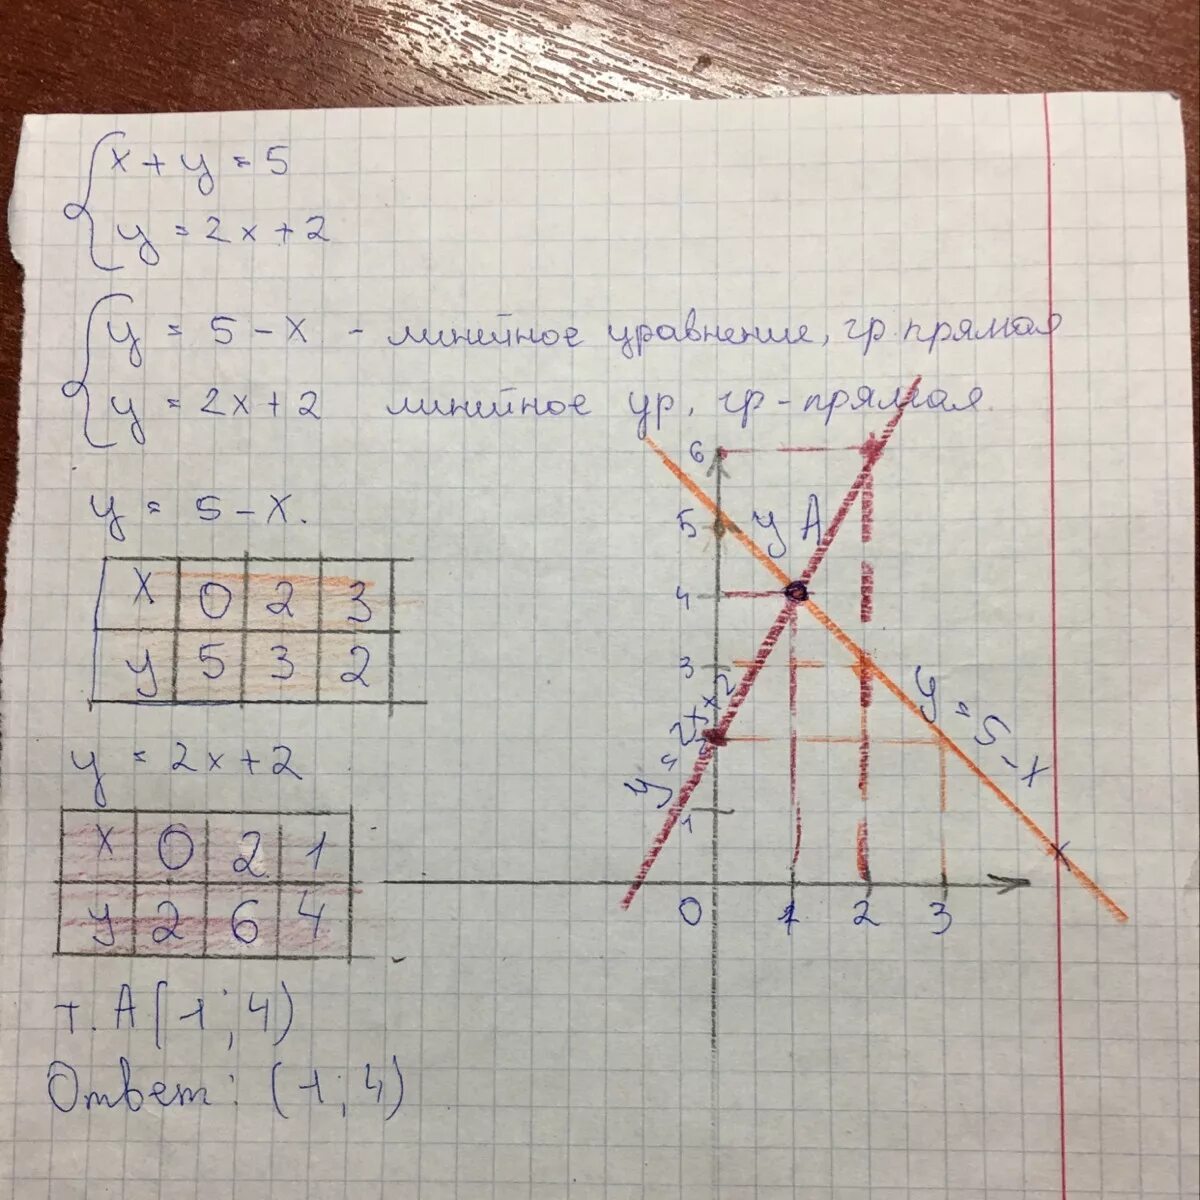 x + y = 5
y = 2x + 2
y = 5 - x - линейное уравнение, гр прямая
y = 2x + 2 линейное ур, гр - прямая
y = 5 - x.
x 0 2 3
y 5 3 2
y = 2x + 2
x 0 2 1
y 2 6 4
т. A (1; 4)
Ответ: (1; 4)
6
5
y A
4
3
2
1
0 1 2 3
y = 2x + 2
y = 5 - x
x